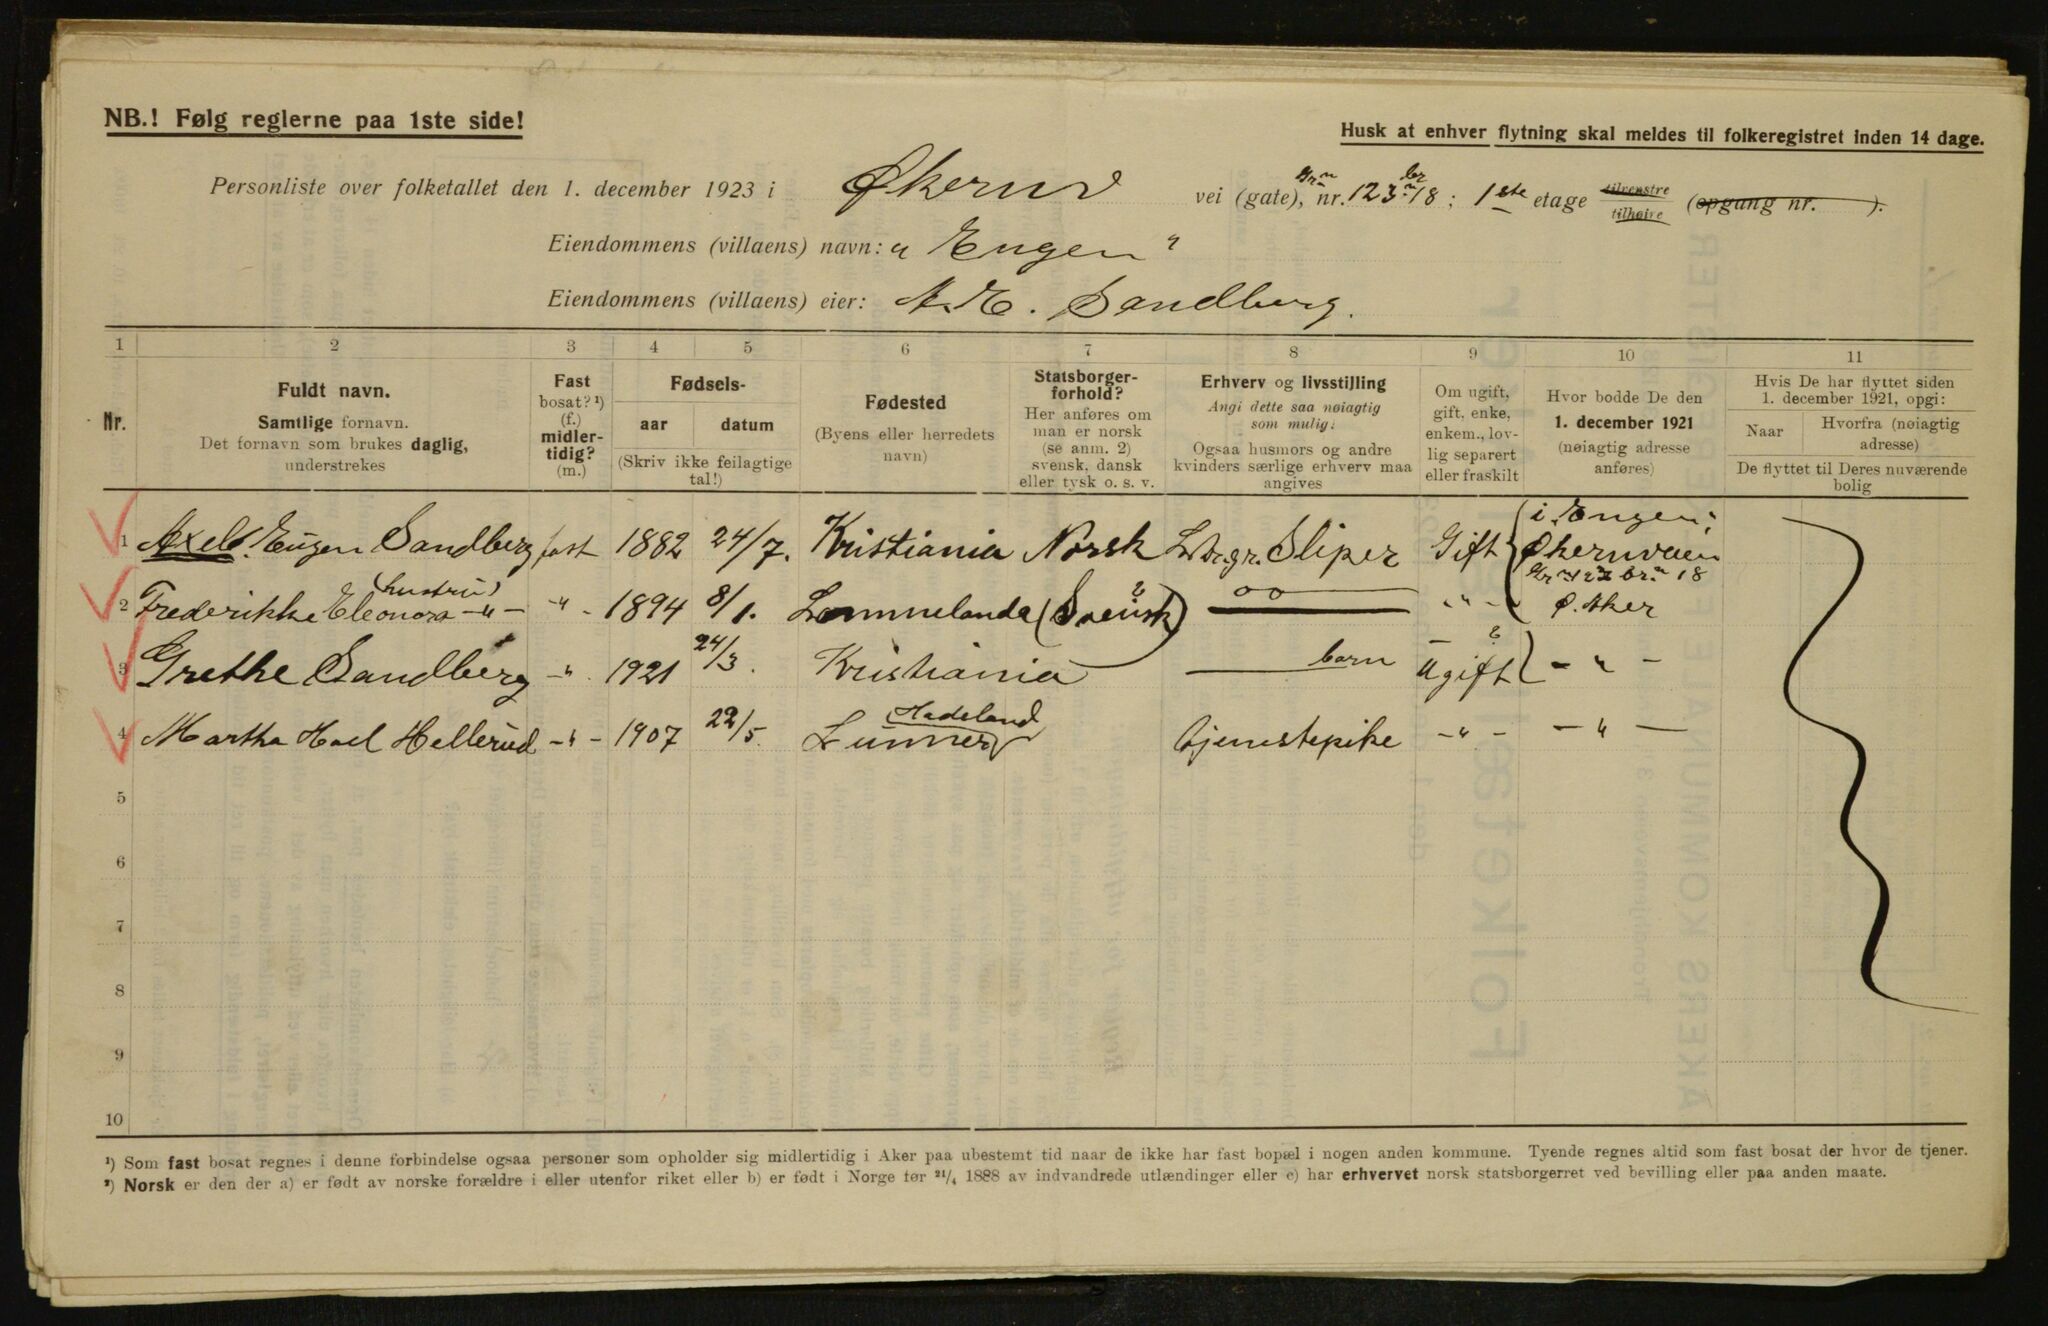 NB.! Følg reglerne paa 1ste side!
Husk at enhver flytning skal meldes til folkeregistret inden 14 dage.
Personliste over folketallet den 1. december 1923 i Økernv vei (gate), nr. 123 br 18; 1ste etage tilvenstre tilhøire (opgang nr. ).
Eiendommens (villaens) navn: "Eugen"
Eiendommens (villaens) eier: A. E. Sandberg.
1 2 3 4 5 6 7 8 9 10 11
Nr.
Fuldt navn.
Samtlige fornavn.
Det fornavn som brukes daglig,
understrekes
Fast
bosat? ¹)
(f.)
midler-
tidig?
(m.)
Fødsels-
aar datum
(Skriv ikke feilagtige
tal!)
Fødested
(Byens eller herredets
navn)
Statsborger-
forhold?
Her anføres om
man er norsk
(se anm. 2)
svensk, dansk
eller tysk o. s. v.
Erhverv og livsstilling
Angi dette saa nøiagtig
som mulig:
Ogsaa husmors og andre
kvinders særlige erhverv maa
angives
Om ugift,
gift, enke,
enkem., lov-
lig separert
eller fraskilt
Hvor bodde De den
1. december 1921
(nøiagtig adresse
anføres)
Hvis De har flyttet siden
1. december 1921, opgi:
Naar Hvorfra (nøiagtig
adresse)
De flyttet til Deres nuværende
bolig
1 Axel Eugen Sandberg fast 1882 24/7. Kristiania Norsk Sliper Gift i "Eugen"
Økernveien
br. 18
hustru
2 Frederikke Eleonora -"- -"- 1894 8/1. Lommelanda (Svensk) -"- Ø. Aker
3 Grethe Sandberg -"- 1921 24/3. Kristiania barn Ugift -"-
Hadeland
4 Martha Hellerud -"- 1907 22/5. Lunner tjenestepike -"- -"-
5
6
7
8
9
10
¹) Som fast bosat regnes i denne forbindelse ogsaa personer som opholder sig midlertidig i Aker paa ubestemt tid naar de ikke har fast bopæl i nogen anden kommune. Tyende regnes altid som fast bosat der hvor de tjener.
²) Norsk er den der a) er født av norske forældre i eller utenfor riket eller b) er født i Norge før 21/4 1888 av indvandrede utlændinger eller c) har erhvervet norsk statsborgerret ved bevilling eller paa anden maate.